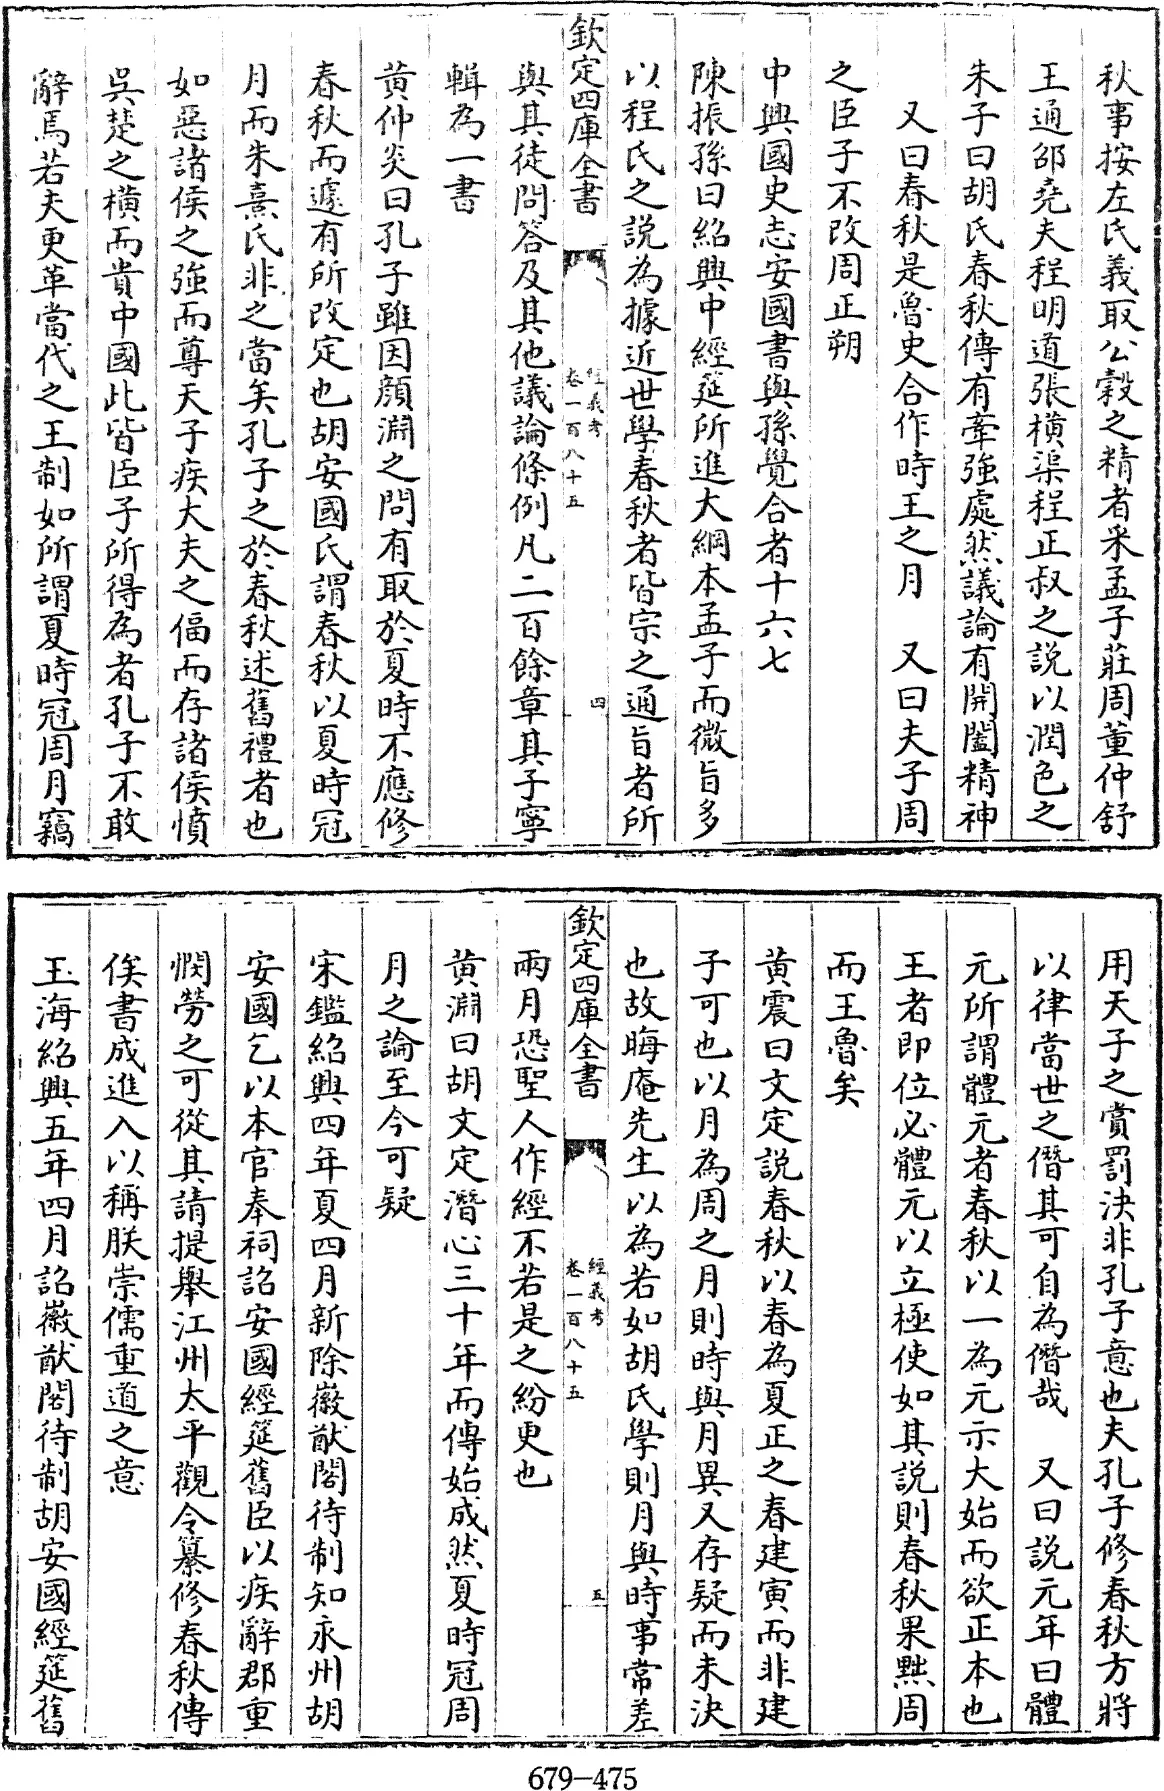 秋事按左氏義取公穀之精者采孟子莊周董仲舒
王通邵堯夫程明道張横渠程正叔之説以潤色之
朱子曰胡氏春秋傳有牽強處然議論有開闔精神
又曰春秋是魯史合作時王之月　又曰夫子周
之臣子不改周正朔
中興國史志安國書與孫覺合者十六七
陳振孫曰紹興中經筵所進大綱本孟子而微旨多
以程氏之説為據近世學春秋者皆宗之通旨者所
欽定四庫全書
經義考
卷一百八十五
四
與其徒問答及其他議論條例凡二百餘章其子寧
輯為一書
黄仲炎曰孔子雖因顔淵之問有取於夏時不應修
春秋而遽有所改定也胡安國氏謂春秋以夏時冠
月而朱熹氏非之當矣孔子之於春秋述舊禮者也
如惡諸侯之強而尊天子疾大夫之偪而存諸侯憤
吳楚之横而貴中國此皆臣子所得為者孔子不敢
辭焉若夫更革當代之王制如所謂夏時冠周月竊
用天子之賞罰決非孔子意也夫孔子修春秋方將
以律當世之僭其可自為僭哉　又曰説元年曰體
元所謂體元者春秋以一為元示大始而欲正本也
王者即位必體元以立極使如其説則春秋果黜周
而王魯矣
黄震曰文定説春秋以春為夏正之春建寅而非建
子可也以月為周之月則時與月異又存疑而未決
也故晦庵先生以為若如胡氏學則月與時事常差
欽定四庫全書
經義考
卷一百八十五
五
兩月恐聖人作經不若是之紛更也
黄淵曰胡文定潛心三十年而傳始成然夏時冠周
月之論至今可疑
宋鑑紹興四年夏四月新除徽猷閣待制知永州胡
安國乞以本官奉祠詔安國經筵舊臣以疾辭郡重
憫勞之可從其請提舉江州太平觀令纂修春秋傳
俟書成進入以稱朕崇儒重道之意
玉海紹興五年四月詔徽猷閣待制胡安國經筵舊
679—475